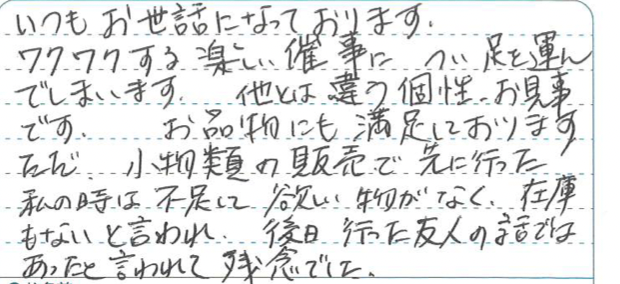 いつもお世話になっております.
ワクワクする楽しい催事に つい足を運ん
でしまいます. 他とは違う個性、お見事
です. お品物にも満足しております
ただ、小物類の販売で先に行った
私の時は不足して欲しい物がなく、在庫
もないと言われ、後日行った友人の話では
あったと言われて残念でした.